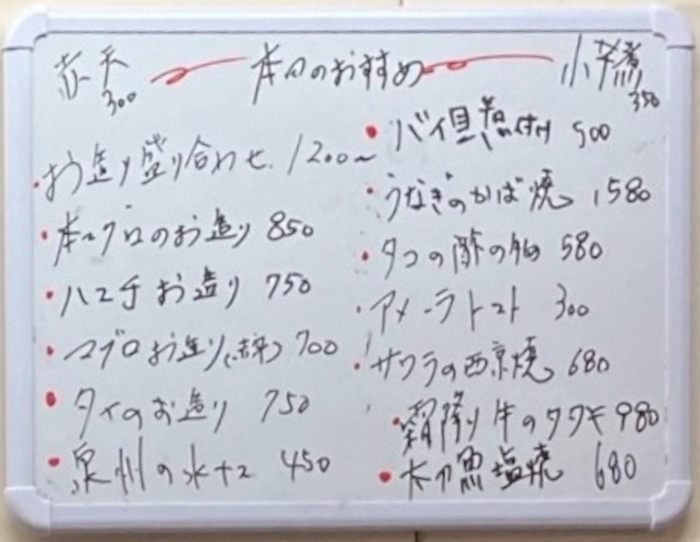 赤天 300
本日のおすすめ
小芋煮 350
・お造り盛り合わせ 1200〜
・本マグロのお造り 850
・ハマチお造り 750
・マグロお造り(赤身) 700
・タイのお造り 750
・泉州の水ナス 450
・バイ貝煮付け 500
・うなぎのかば焼 1580
・タコの酢の物 580
・アメーラトマト 300
・サワラの西京焼 680
・霜降り牛のタタキ 980
・太刀魚塩焼 680